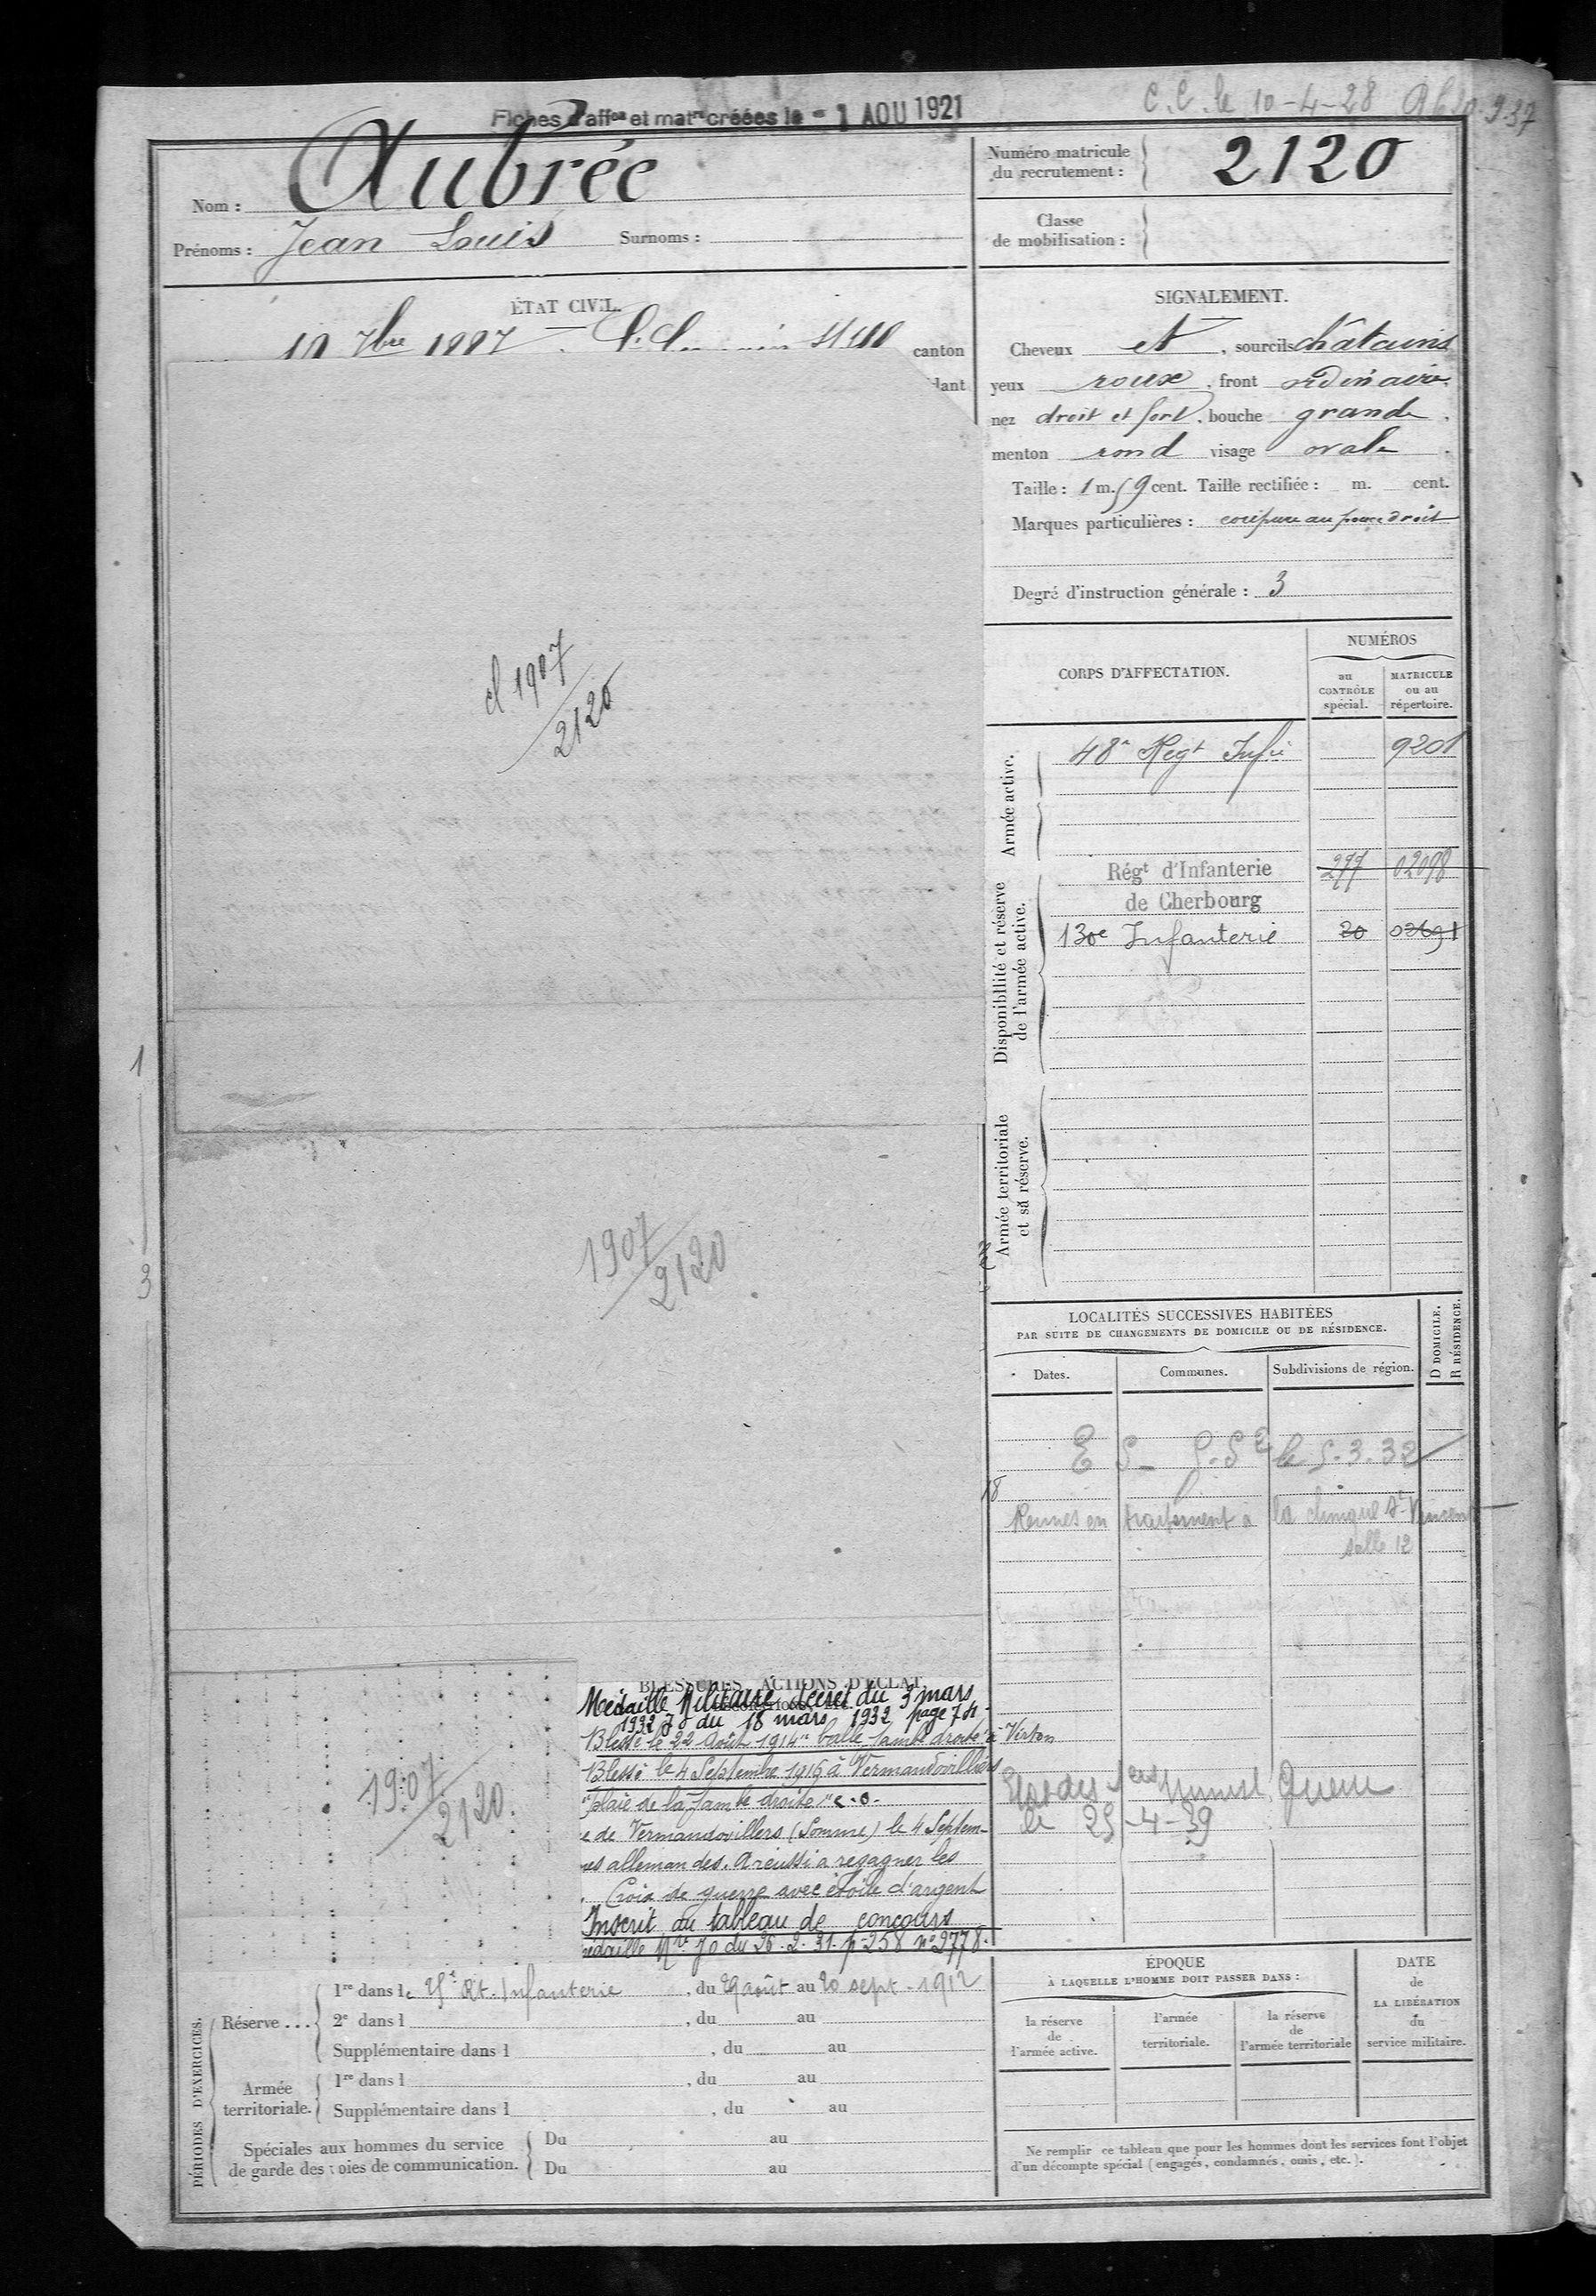 C.C. le 10-4-28
Fiches d'affon et matre créées le - 1 AOU 1921
Nom : Aubrée
Prénoms : Jean Louis Surnoms :
Numéro matricule du recrutement : 2120
Classe de mobilisation :
ÉTAT CIVIL.
canton
dant
cl 1907
2120
1907
2120
1907
2120
1
3
SIGNALEMENT.
Cheveux et , sourcils châtains
yeux roux , front ordinaire,
nez droit et fort , bouche grande .
menton rond visage ovale .
Taille : 1 m. 59 cent. Taille rectifiée : m. cent.
Marques particulières : coupure au pouce droit
Degré d'instruction générale : 3
CORPS D'AFFECTATION.
NUMÉROS
au CONTRÔLE spécial.
MATRICULE ou au répertoire.
Armée active.
48e Regt Infie 9201
Disponibilité et réserve de l'armée active.
Régt d'Infanterie 277 02098
de Cherbourg
130e Infanterie 20 02691
Armée territoriale et sa réserve.
LOCALITÉS SUCCESSIVES HABITÉES
PAR SUITE DE CHANGEMENTS DE DOMICILE OU DE RÉSIDENCE.
D DOMICILE.
R RÉSIDENCE.
Dates.
Communes.
Subdivisions de région.
le 5.3.32
Rennes en traitement à la clinique St Vincent
salle 12
le 25-4-39
BLESSURES, ACTIONS D'ÉCLAT,
Médaille Militaire décret du 3 mars
1932 JO du 18 mars 1932 page 74
Blessé le 22 Août 1914 "balle jambe droite" à Virton
Blessé le 4 Septembre 1916 à Vermandovillers
"plaie de la jambe droite"
e de Vermandovillers (Somme) le 4 Septem-
nes allemandes. A réussi à regagner les
. Croix de guerre avec étoile d'argent
Inscrit au tableau de concours
médaille Mre JO du 26.2.31. p-258 n° 2778.
PÉRIODES D'EXERCICES.
Réserve ...
1re dans le Rt. Infanterie , du 29 août au 20 sept - 1912
2e dans l , du au
Supplémentaire dans l , du au
Armée territoriale.
1re dans l , du au
Supplémentaire dans l , du au
Spéciales aux hommes du service de garde des voies de communication.
Du au
Du au
ÉPOQUE
À LAQUELLE L'HOMME DOIT PASSER DANS :
la réserve de l'armée active.
l'armée territoriale.
la réserve de l'armée territoriale
DATE de LA LIBÉRATION du service militaire.
Ne remplir ce tableau que pour les hommes dont les services font l'objet
d'un décompte spécial (engagés, condamnés, omis, etc.).